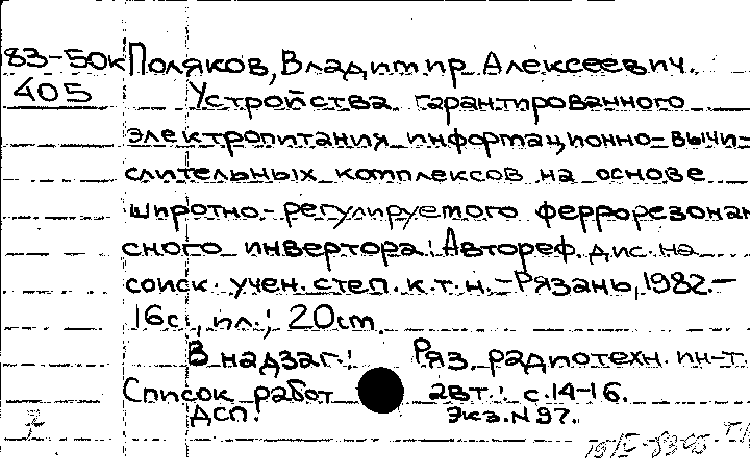 83-50к Поляков, Владимир Алексеевич.
405 Устройства гарантированного
электропитания информационно-вычи-
слительных комплексов на основе
широтно-регулируемого феррорезонан
сного инвертора: Автореф. дис. на
соиск. учен. степ. к.т.н. - Рязань, 1982. -
16с., ил.; 20см.
В надзаг.: Ряз. радиотехн. ин-т.
Список работ авт.: с.14-16.
ДСП. Экз. N 97.